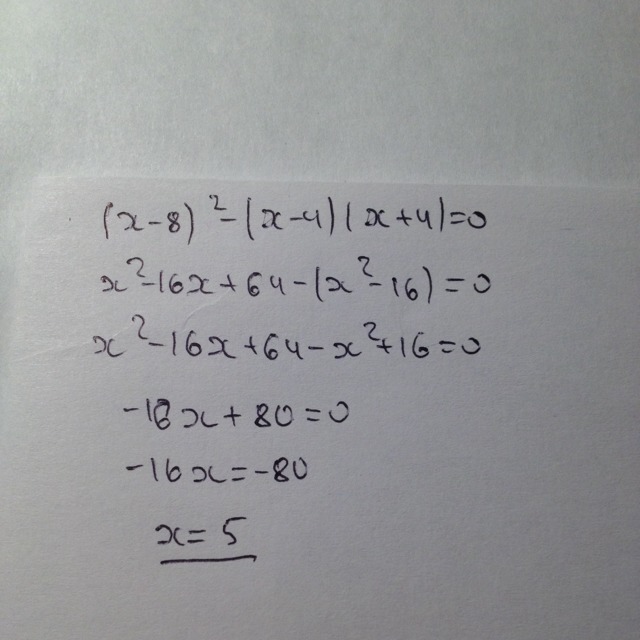 (x-8)²-(x-4)(x+4)=0
x²-16x+64-(x²-16)=0
x²-16x+64-x²+16=0
-16x+80=0
-16x=-80
x=5